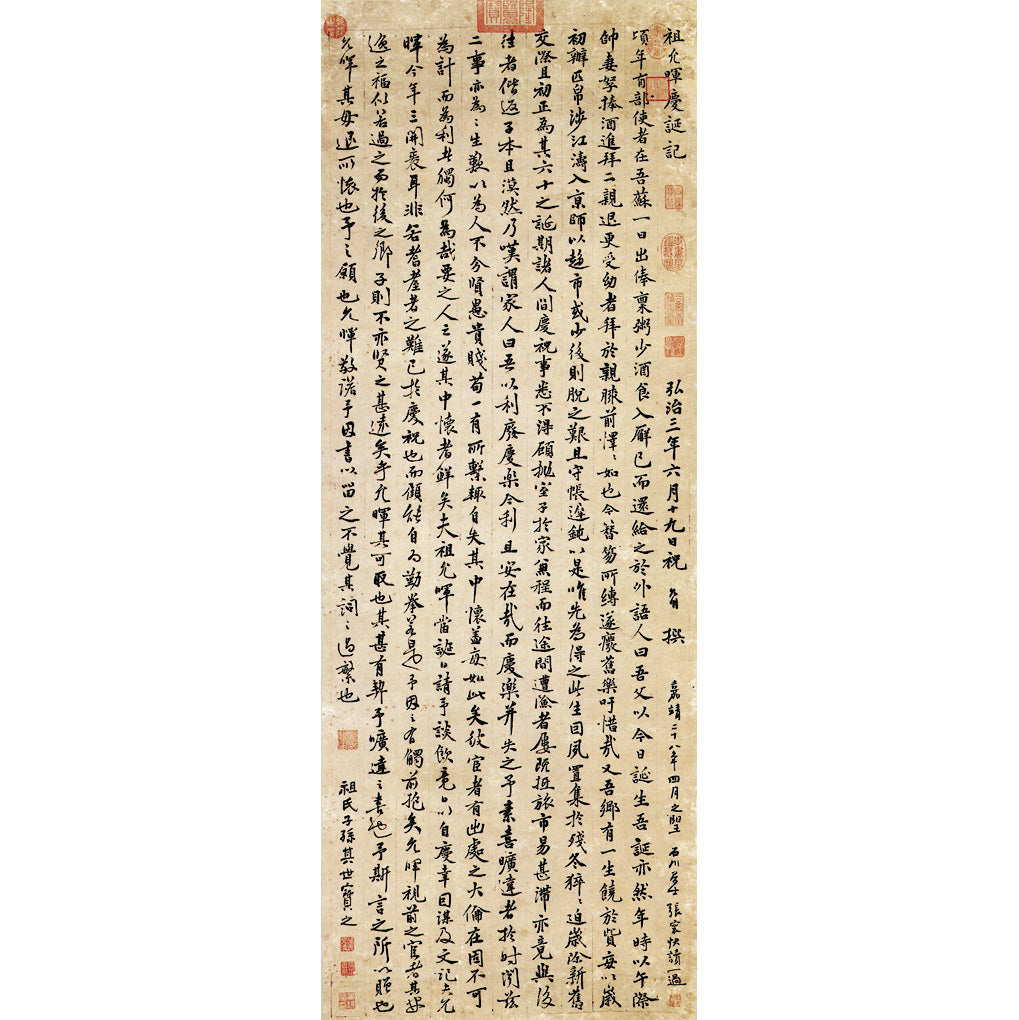 祖允暉慶誕記
弘治三年六月十九日祝允明撰
嘉靖二十八年四月之望 石川居士張寰快讀一過
頃年有部使者在吾蘇一日出俸稟粥少酒食入廨已而還給之於外語人曰吾父以今日誕生吾誕亦然年時以午際
帥妻孥捧酒進拜二親退更受幼者拜於親膝前懌〻如也今簪笏所縛遂癈舊樂吁惜哉又吾鄉有一生饒於貲每以歲
初辦匹帛涉江濤入京師以趍市或少後則脫之艱且守帳遲鈍以是唯先為得之此生回夙置集於殘冬猝〻迫歲除新舊
交際且初正為其六十之誕期諸人間慶祝事悉不得顧拋室子於家兼程而往途間遭澮者屢既抵旅市易甚滯亦竟與後
往者偕返子本且漠然乃嘆謂家人曰吾以利廢慶樂今利且安在哉而慶樂并失之予素喜曠達者於時閱茲
二事亦為〻生歎以為人不分賢愚貴賤苟一有所繫輒自失其中懷蓋每如此矣彼宦者有出處之大倫在固不可
為計而為利者獨何為哉要之人之遂其中懷者鮮矣夫祖允暉當誕日請予談飲竟日以自慶幸因謀及文記之允
暉今年三開袠耳非若耆耋者之難已於慶祝也而顧能自為勤拳若是予因之有觸前抱矣允暉視前之宦者其安
逸之福似若過之而於後之鄉子則不亦賢之甚遠矣乎允暉其可取也其甚有契予曠達之喜也予斯言之所以贈也
允暉其毋退所懷也予之願也允暉敬諾予因書以留之不覺其詞之過繁也
祖氏子孫其世寶之